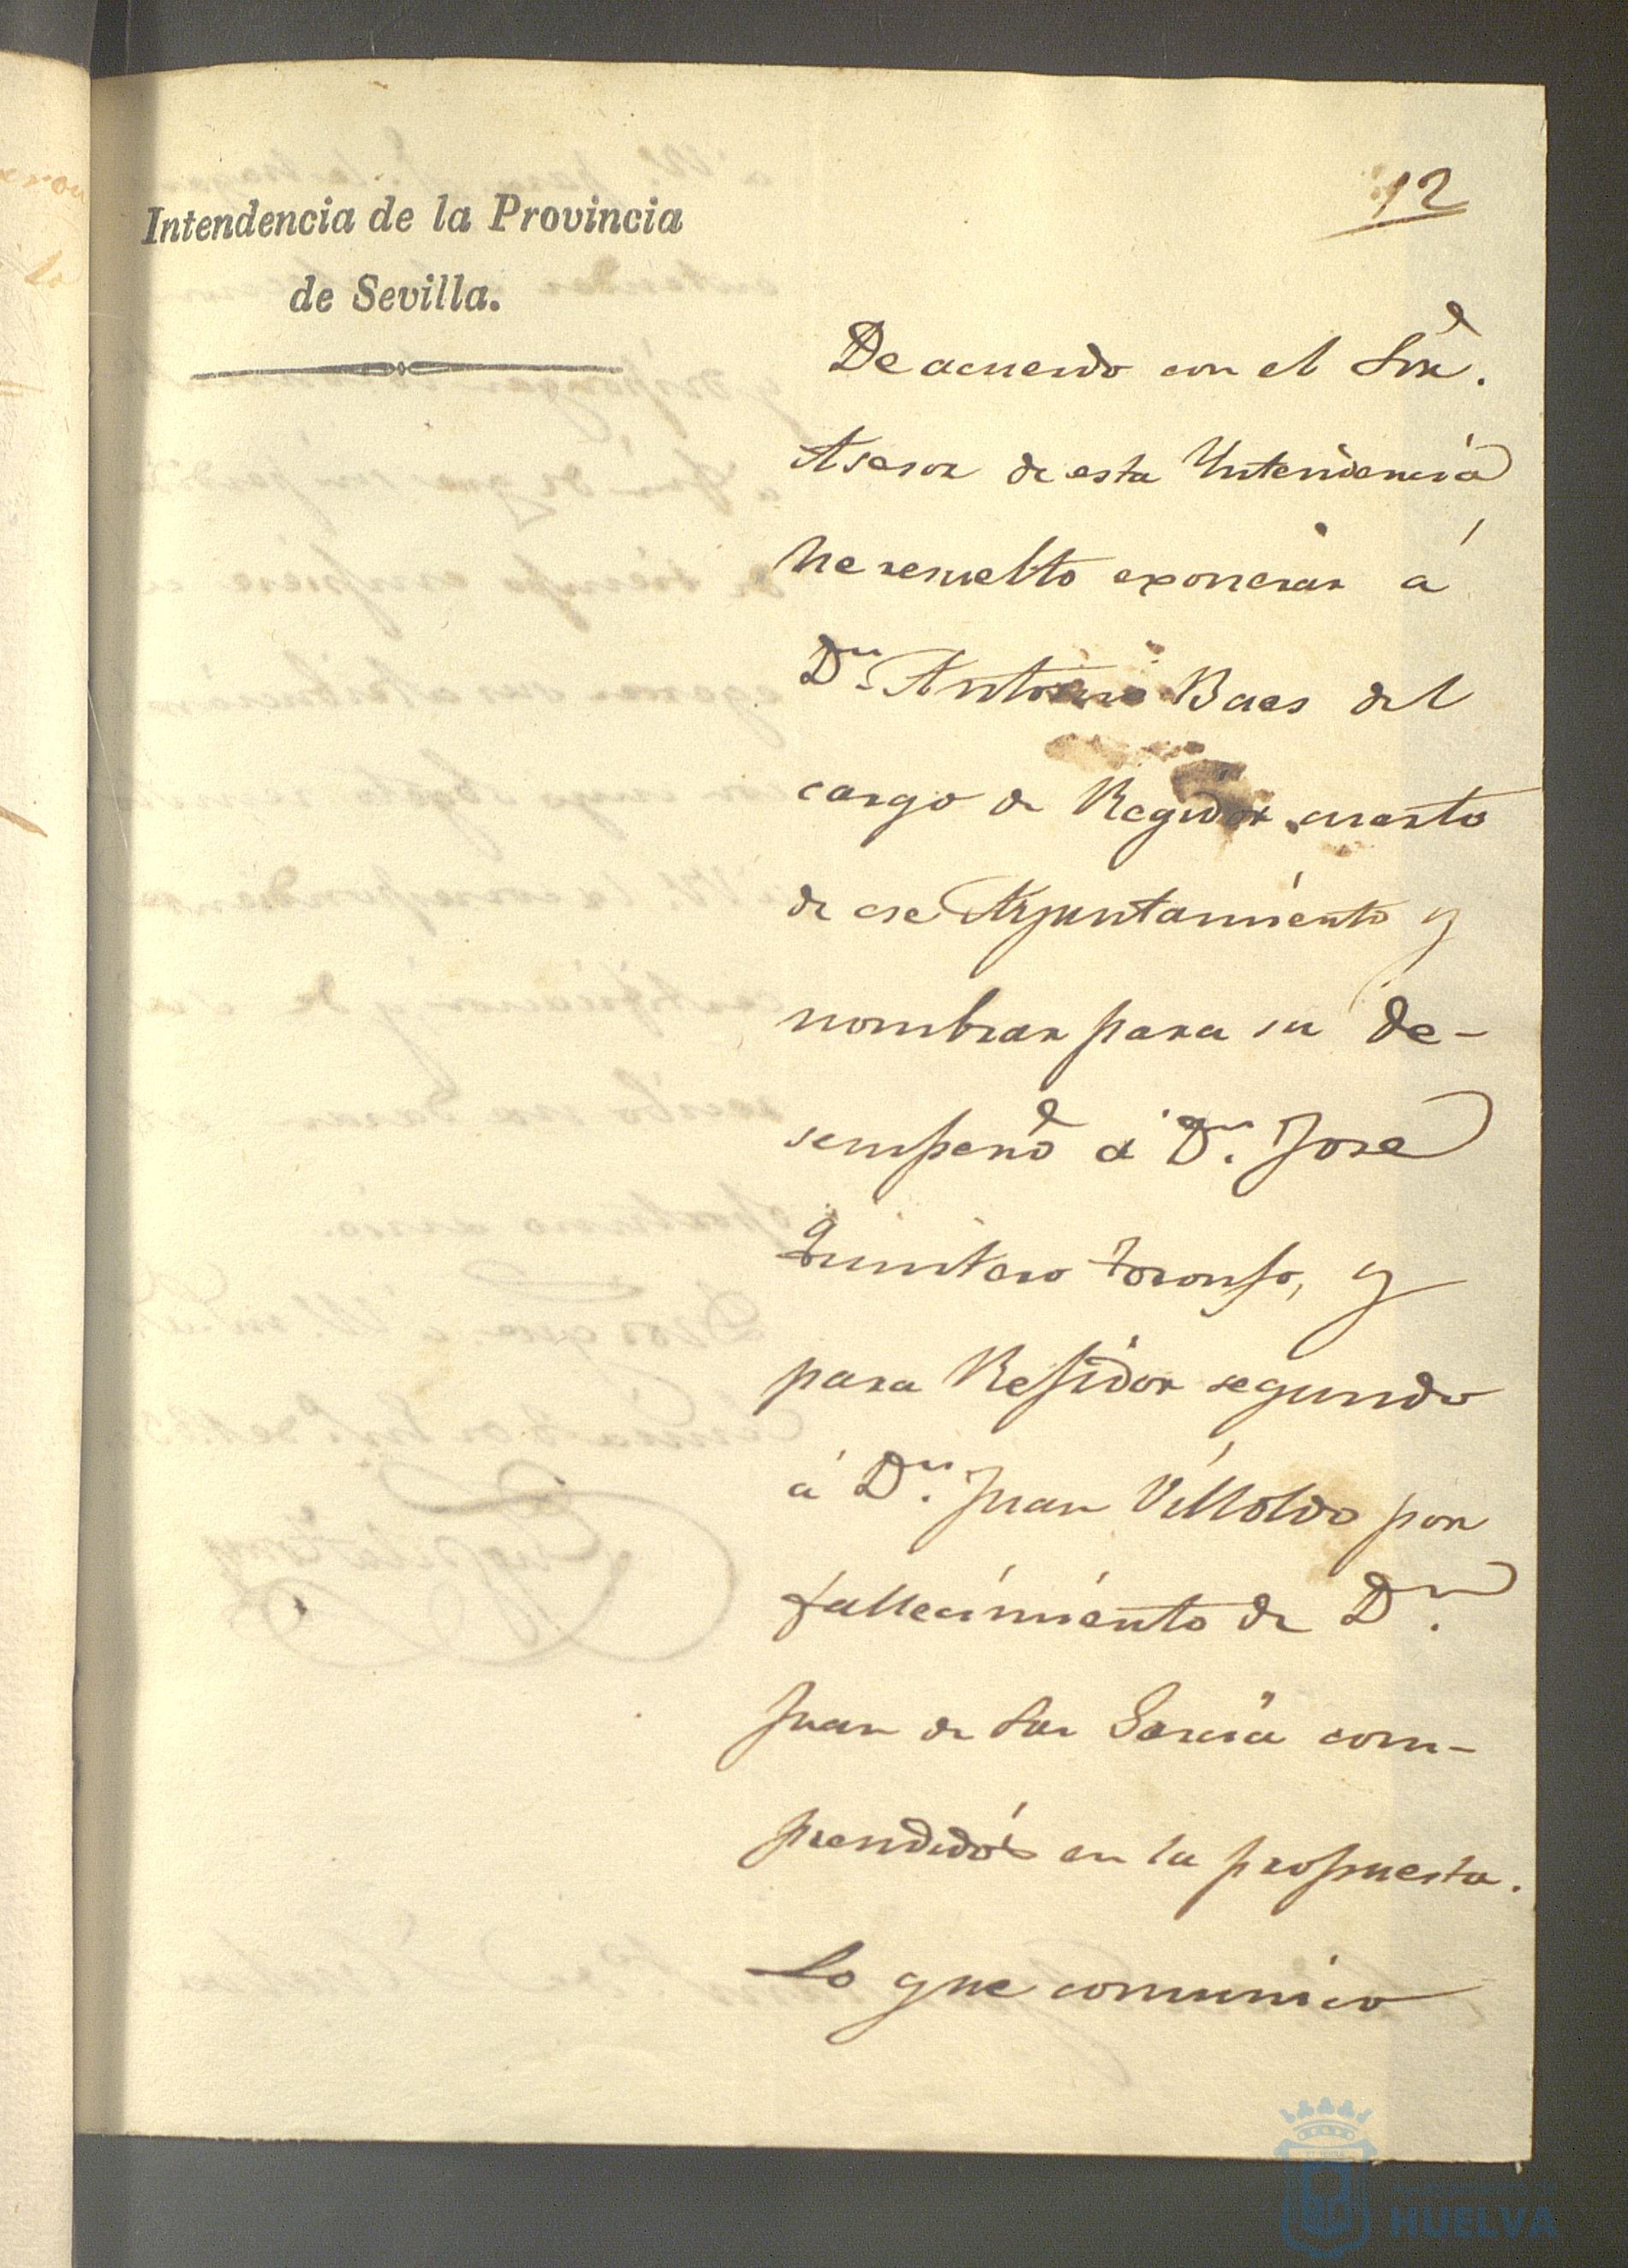 Intendencia de la Provincia
de Sevilla.
12
De acuerdo con el Sor.
Asesor de esta Yntendencia
he resuelto exonerar á
Dn. Antonio Baes del
cargo de Regidor cuarto
de ese Ayuntamiento y
nombrar para su de-
sempeño á Dn. Jose
Quintero y
para Regidor segundo
á Dn. Juan Villoldo por
fallecimiento de Dn.
Juan de García com-
prendidos en la propuesta.
Lo que comunico
HUELVA